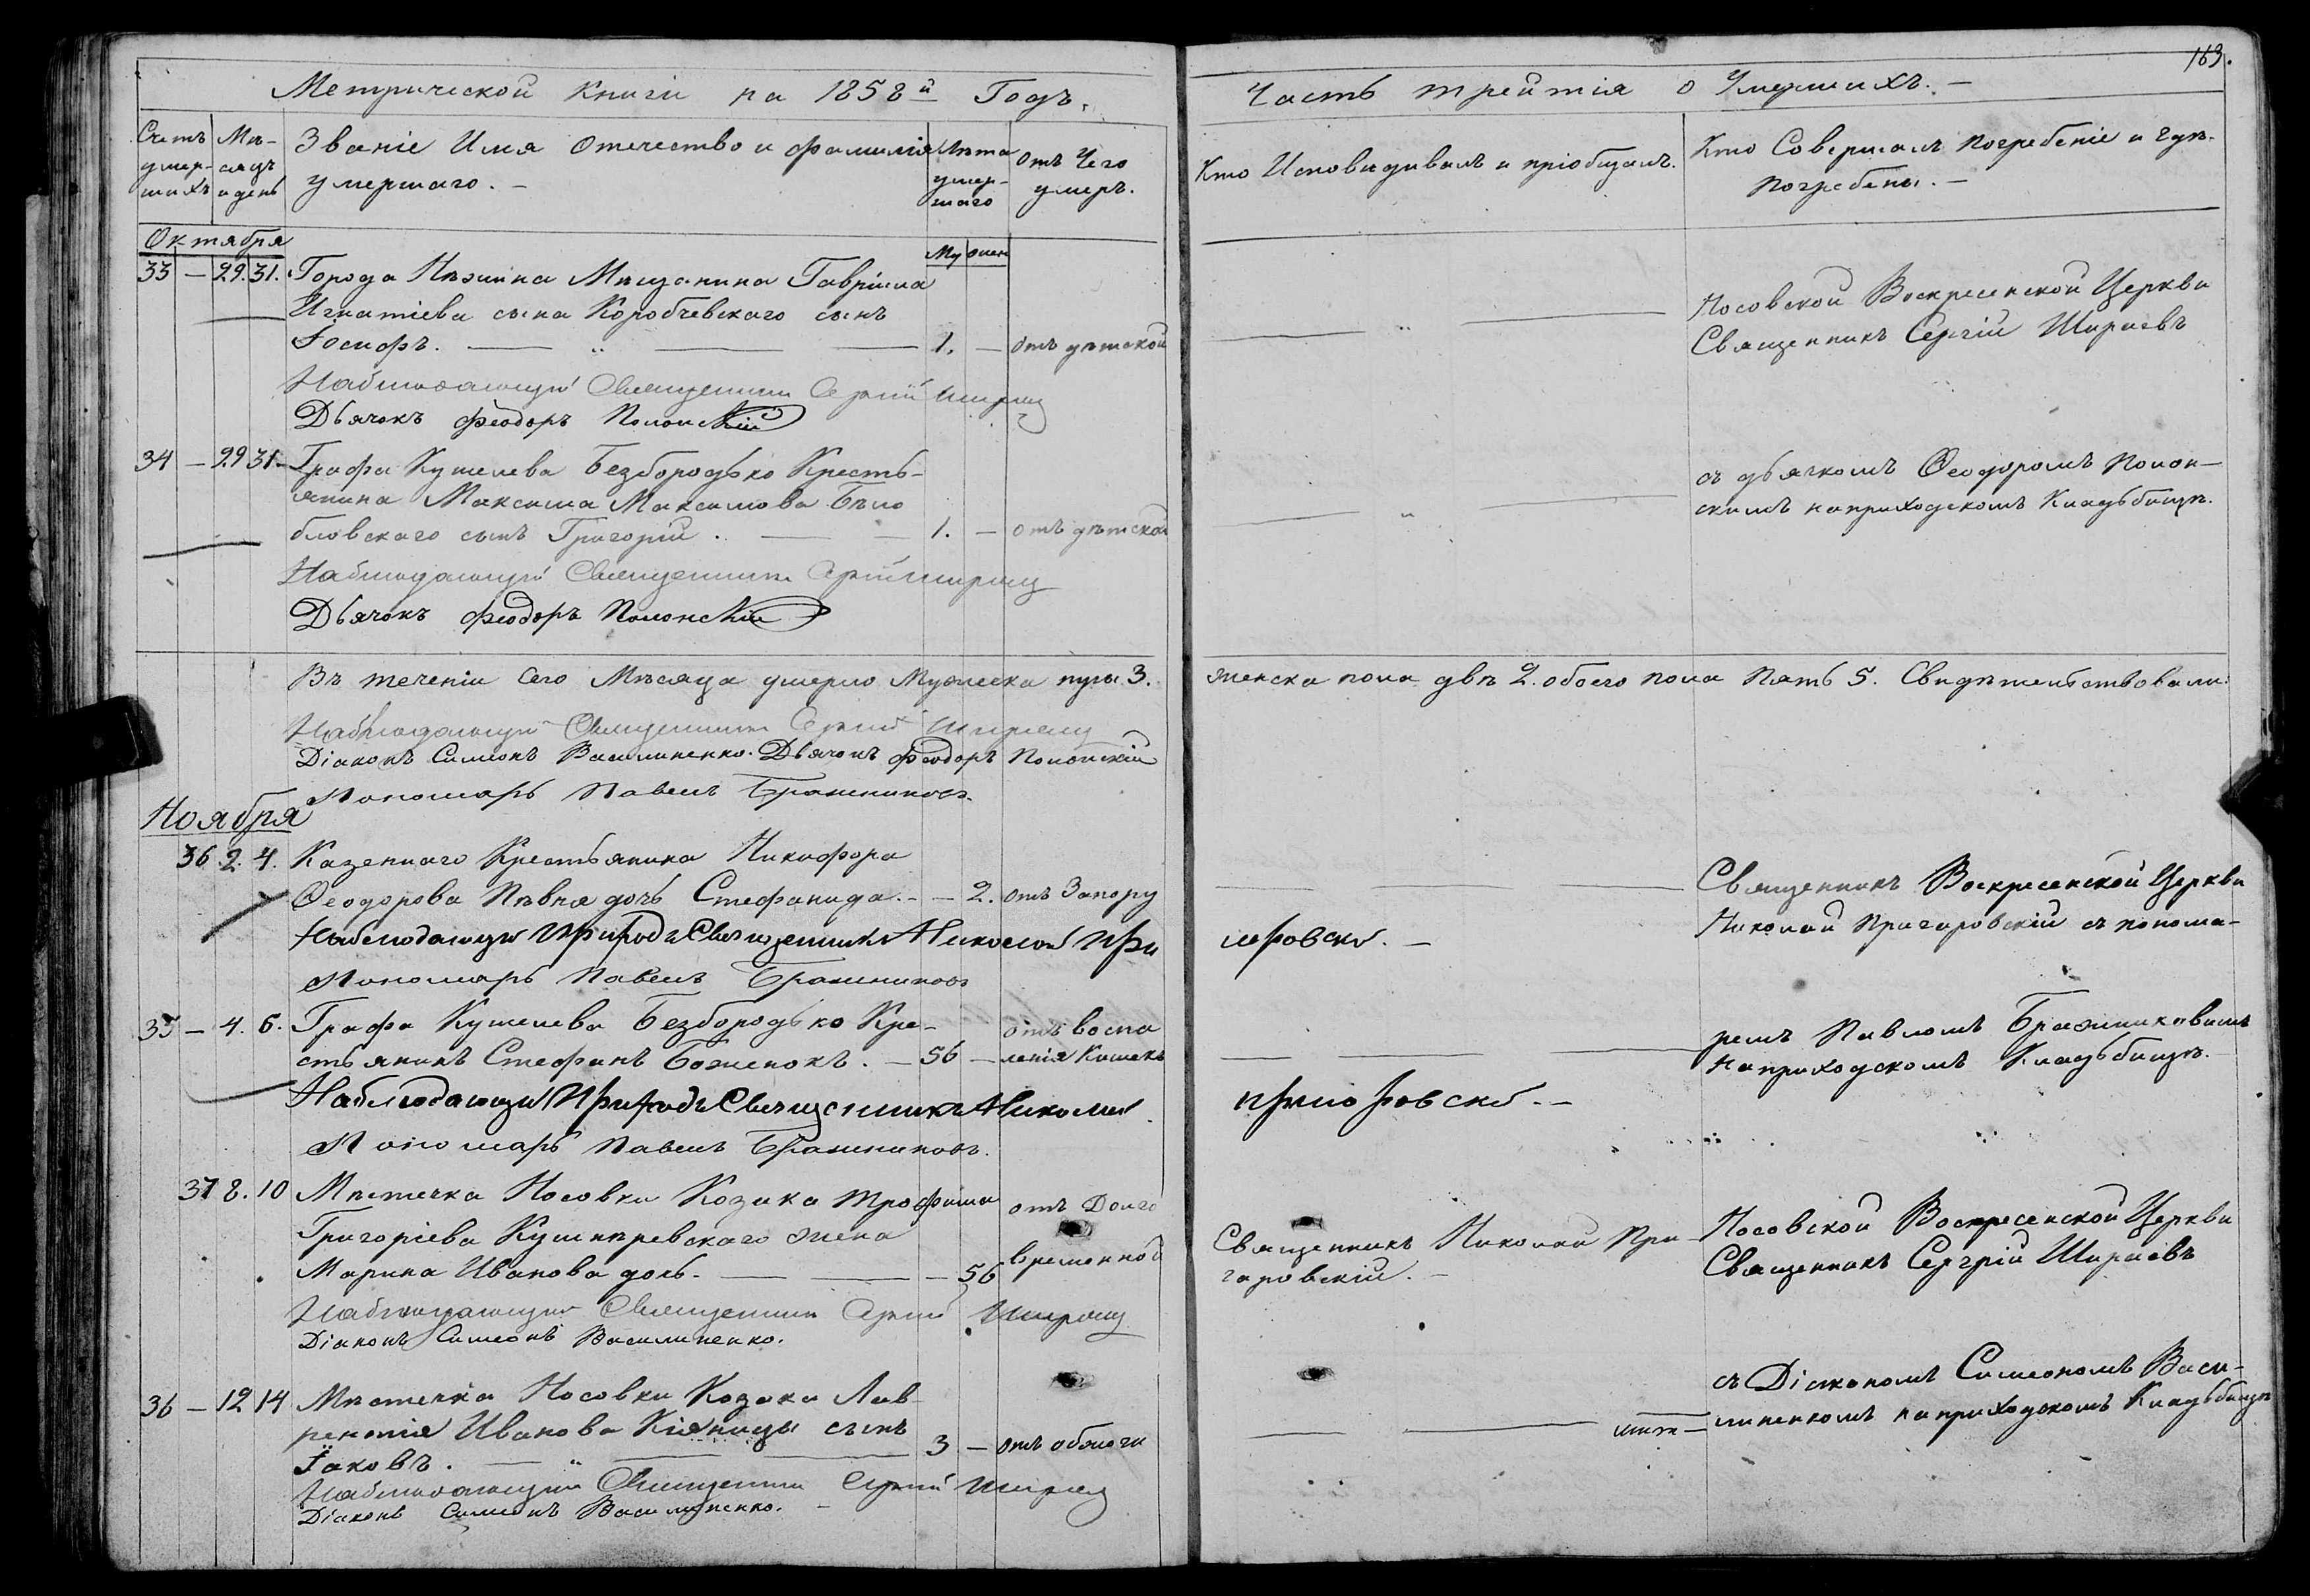 163.
Метрической Книги на 1858й Годъ.
Часть трейтія о Умершихъ. –
Счетъ умер-шихъ
Мѣ-сяцъ и день
Званіе Имя Отечество и фамилія
умершаго. –
Лѣта умер-шаго
отъ Чего
умеръ.
Кто Исповидивалъ и пріобщалъ.
Кто Совершалъ Погребеніе и гдѣ-
погребены. –
Октября
Му женс
33 – 29. 31. Города Нѣжина Мѣщанина Гавріила
Игнатіева сына Коробчевскаго сынъ
Іосифъ. – „ – 1. – отъ дѣтской
Носовской Воскресенской Церкви
Священникъ Сергій Шираевъ
Наблюдающій Священникъ Сергій
Дьячокъ Феодоръ Полонскій
34 – 29 31 – Графа Кушелева Безбородько Кресть-
янина Максима Максимова Бѣло
бловскаго сынъ Григорій. – 1. – отъ дѣтской
съ дьячкомъ Ѳеодоромъ Полон-
скимъ на приходскомъ Кладьбищѣ.
Наблюдающій Священникъ Сергій
Дьячокъ Феодоръ Полонскій
Въ теченіи Сего Мѣсяца умерло Мужеска пула 3. женска пола двѣ 2. обоего пола Пять 5. Свидѣтельствовали:
Наблюдающій Священникъ Сергій
Діаконъ Симеонъ Василиненко. Дьячокъ Феодоръ Полонскій
Пономарь Павелъ Бражниковъ.
Ноября
36. 2. 4. Казеннаго Крестьянина Никифора
Ѳеодорова Пѣвня дочь Стефанида. – – 2. отъ Запору
Священникъ Воскресенской Церкви
Николай Пригоровскій съ понома-
Наблюдающій Приходъ Священникъ Николай При
горовскій. –
Пономарь Павелъ Бражниковъ
35 – 4. 6. Графа Кушелева Безбородько Кре-
стьянинъ Стефанъ Боженокъ. – 56 –
отъ воспа
ленія Кишекъ
ремъ Павломъ Бражниковымъ
на приходскомъ Кладьбищѣ.
Наблюдающій Приходъ Священникъ Николай
Пригоровскій. –
Пономарь Павелъ Бражниковъ.
37 8. 10 Мѣстечка Носовки Козака Трофима
Григоріева Кушнѣревскаго жена
Марина Иванова дочь. – – 56
отъ Долго
временной
Священникъ Николай При-
горовскій. –
Носовской Воскресенской Церкви
Священникъ Сергрій Шираевъ
Наблюдающій Священникъ Сергій
Діаконъ Симеонъ Василиненко.
36 – 12 14 Мѣстечка Носовки Козака Лав-
рентія Иванова Кіяницы сынъ
Іаковъ. – „ – 3 – отъ обжоги
съ Діакономъ Симеономъ Васи-
линенкомъ на приходскомъ Кладьбищѣ
Наблюдающій Священникъ Сергій
Діаконъ Симеонъ Василиненко. –